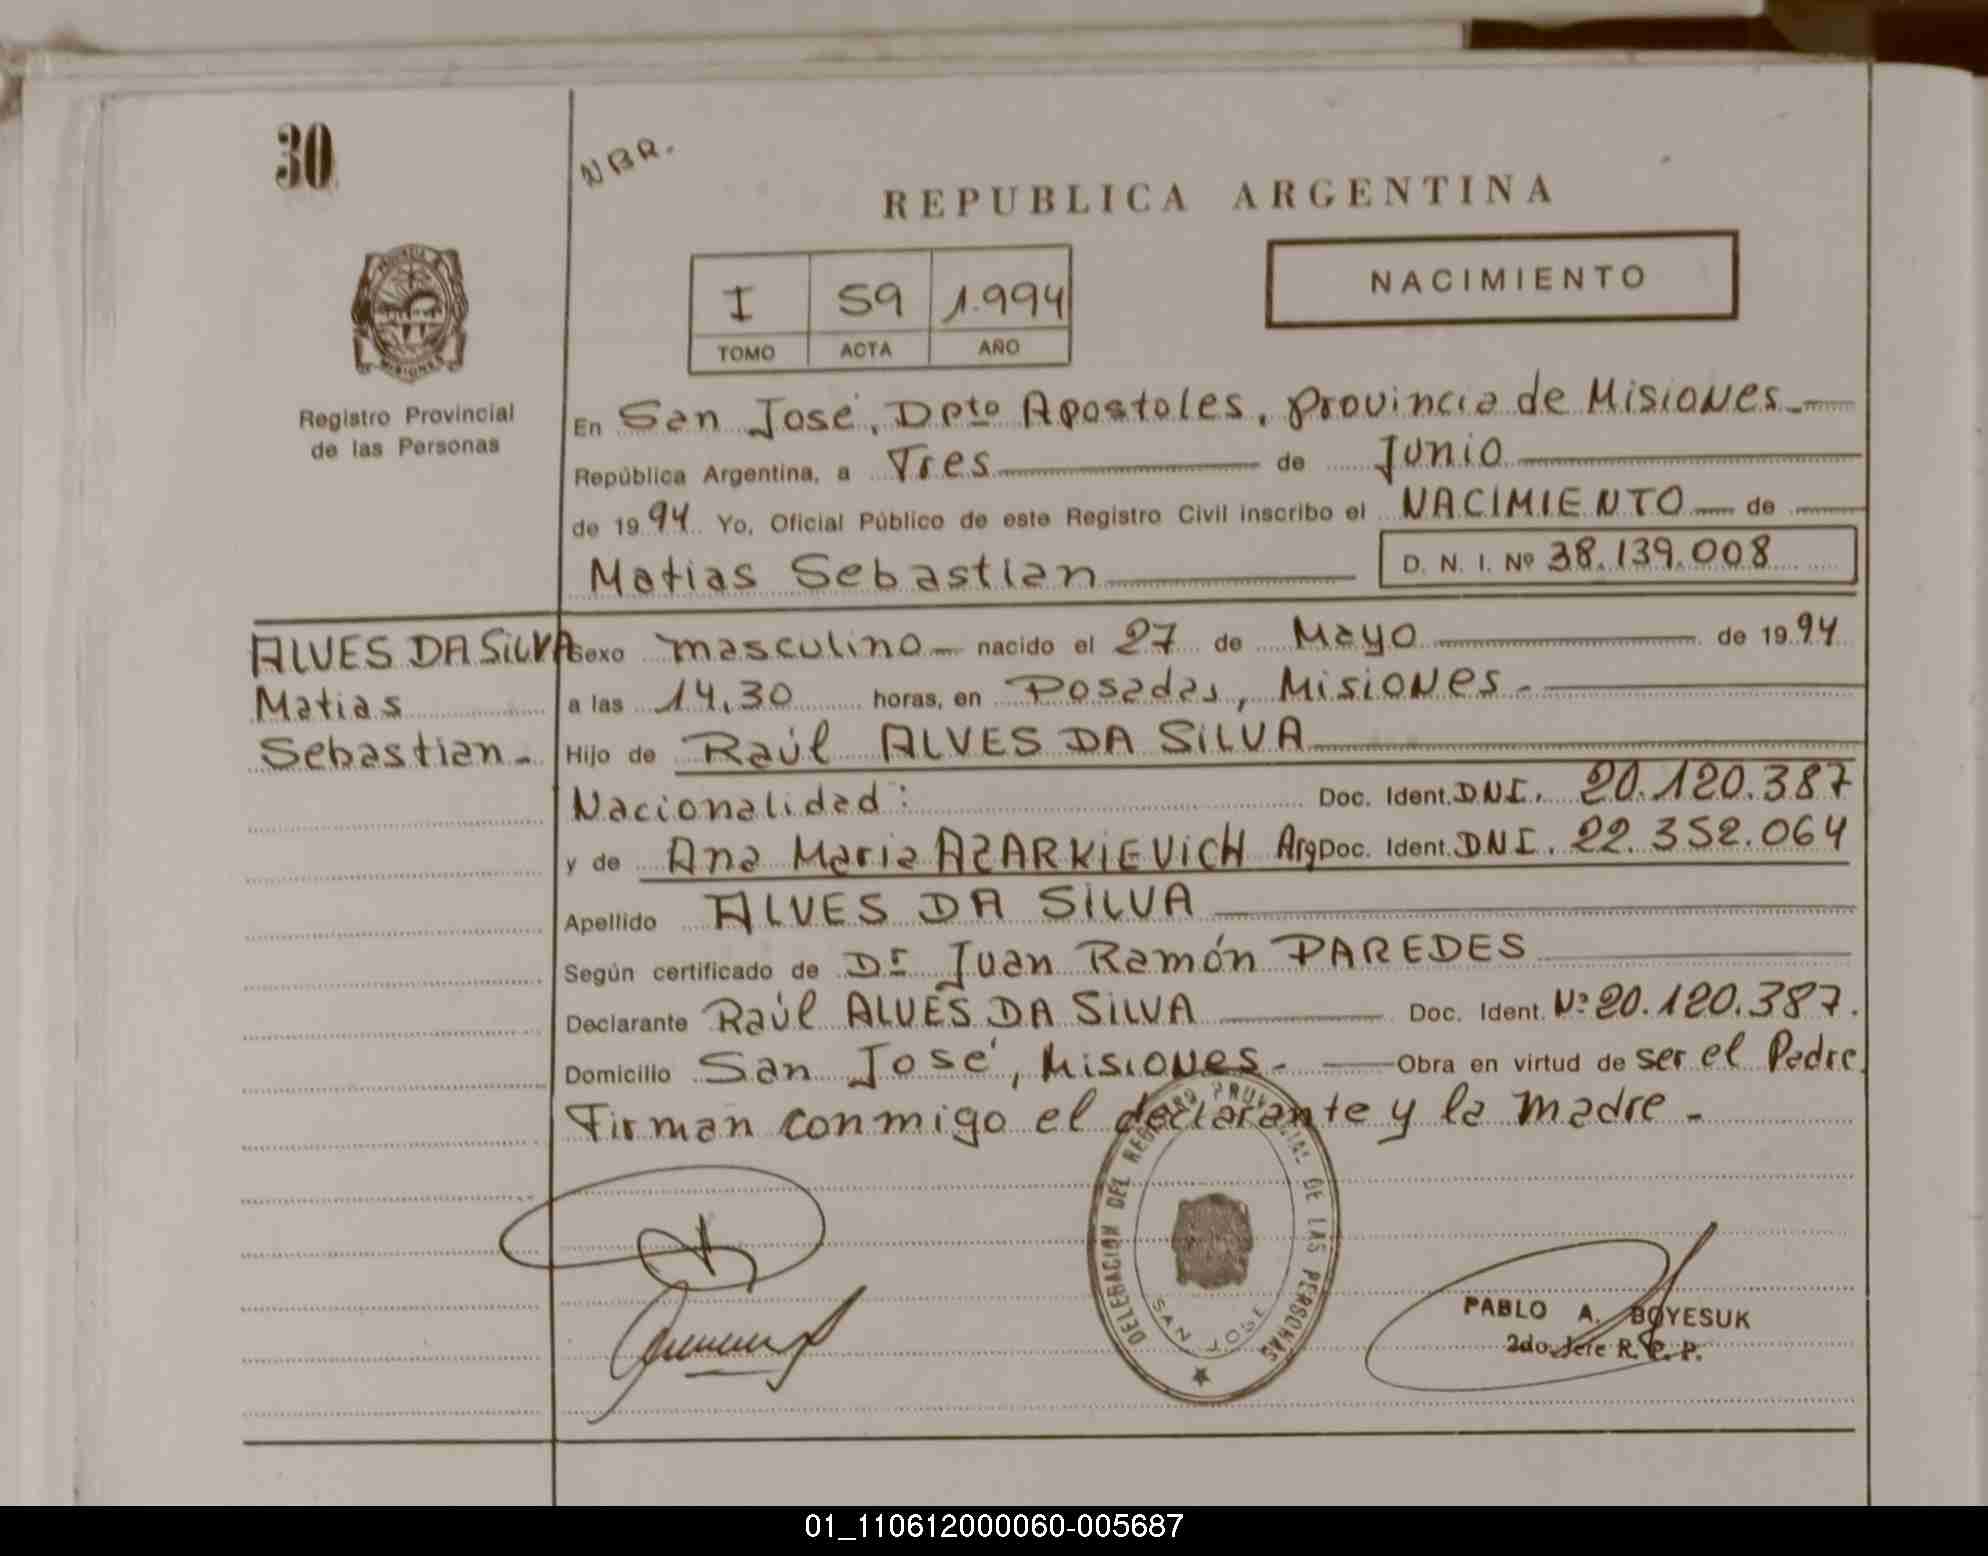 30
NBR.
REPUBLICA ARGENTINA
I 59 1.994
TOMO ACTA AÑO
NACIMIENTO
Registro Provincial
de las Personas
En San José, Dpto Apostoles, provincia de Misiones.
República Argentina, a Tres de Junio
de 1994 Yo, Oficial Público de este Registro Civil inscribo el NACIMIENTO de
Matias Sebastian D. N. I. Nº 38.139.008
ALVES DA SILVA
Matias
Sebastian.
Sexo masculino nacido el 27 de Mayo de 1994
a las 14,30 horas, en Posadas, Misiones.
Hijo de Raúl ALVES DA SILVA
Nacionalidad: Doc. Ident. DNI. 20.120.387
y de Ana Maria AZARKIEVICH Arg Doc. Ident. DNI. 22.352.064
Apellido ALVES DA SILVA
Según certificado de Dr Juan Ramón PAREDES
Declarante Raúl ALVES DA SILVA Doc. Ident. Nº 20.120.387.
Domicilio San José, Misiones. Obra en virtud de ser el Padre.
Firman conmigo el declarante y la madre.
DELEGACION DEL REGISTRO PROVINCIAL DE LAS PERSONAS
SAN JOSE
PABLO A. BOYESUK
2do. Jefe R. P. P.
01_110612000060-005687